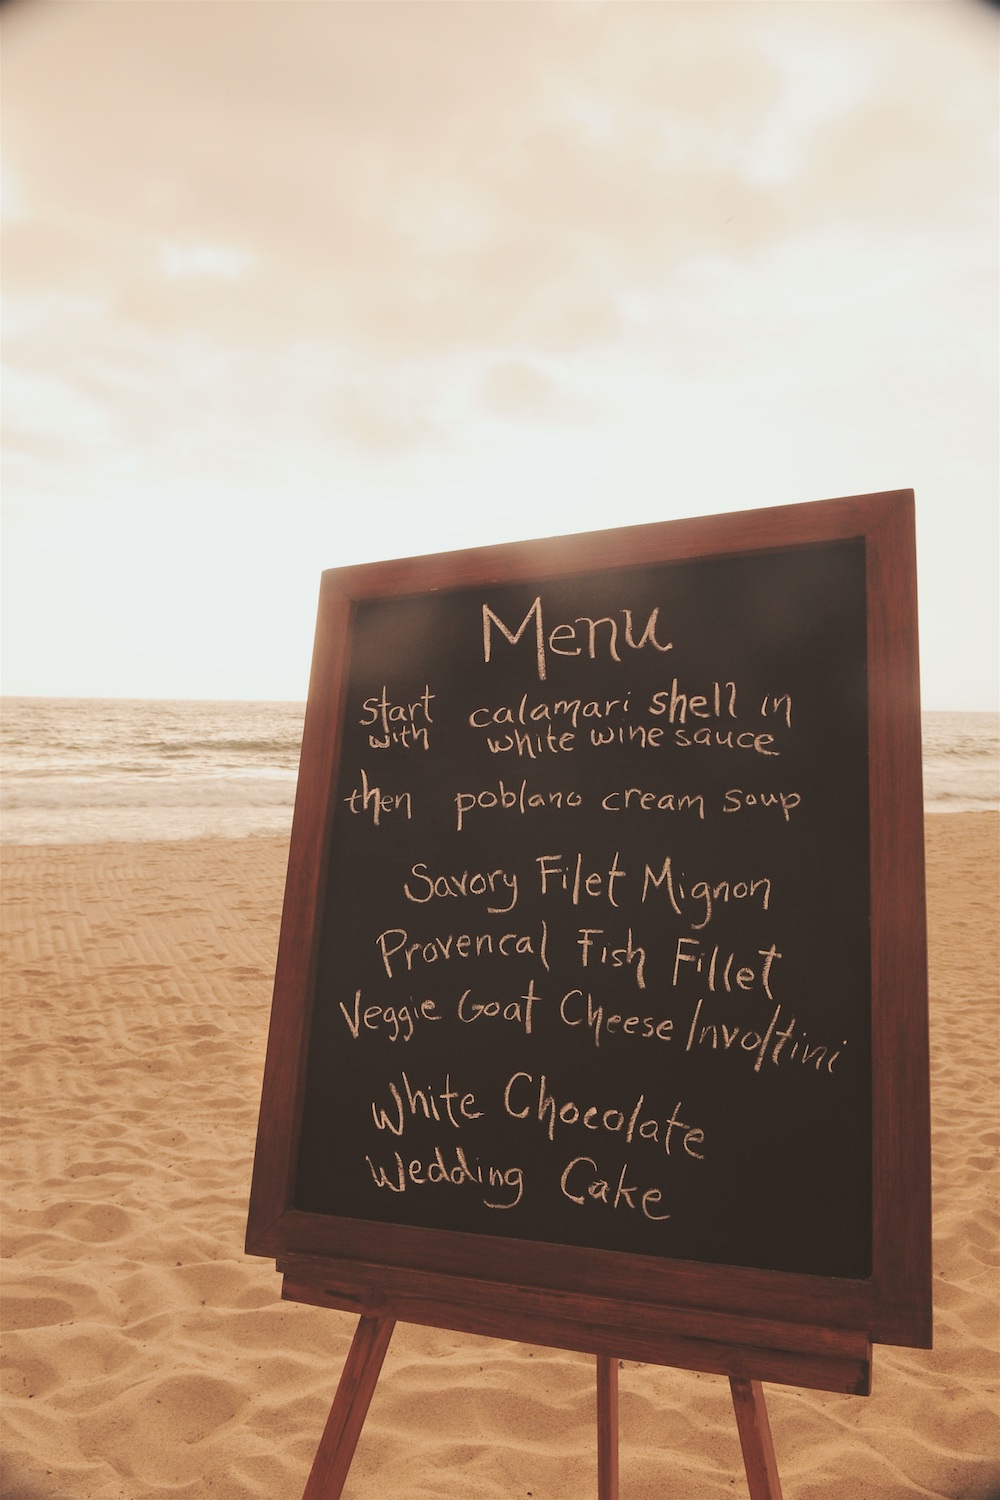 Menu
start with calamari shell in
white wine sauce
then poblano cream soup
Savory Filet Mignon
Provencal Fish Fillet
Veggie Goat Cheese Involtini
White Chocolate
Wedding Cake